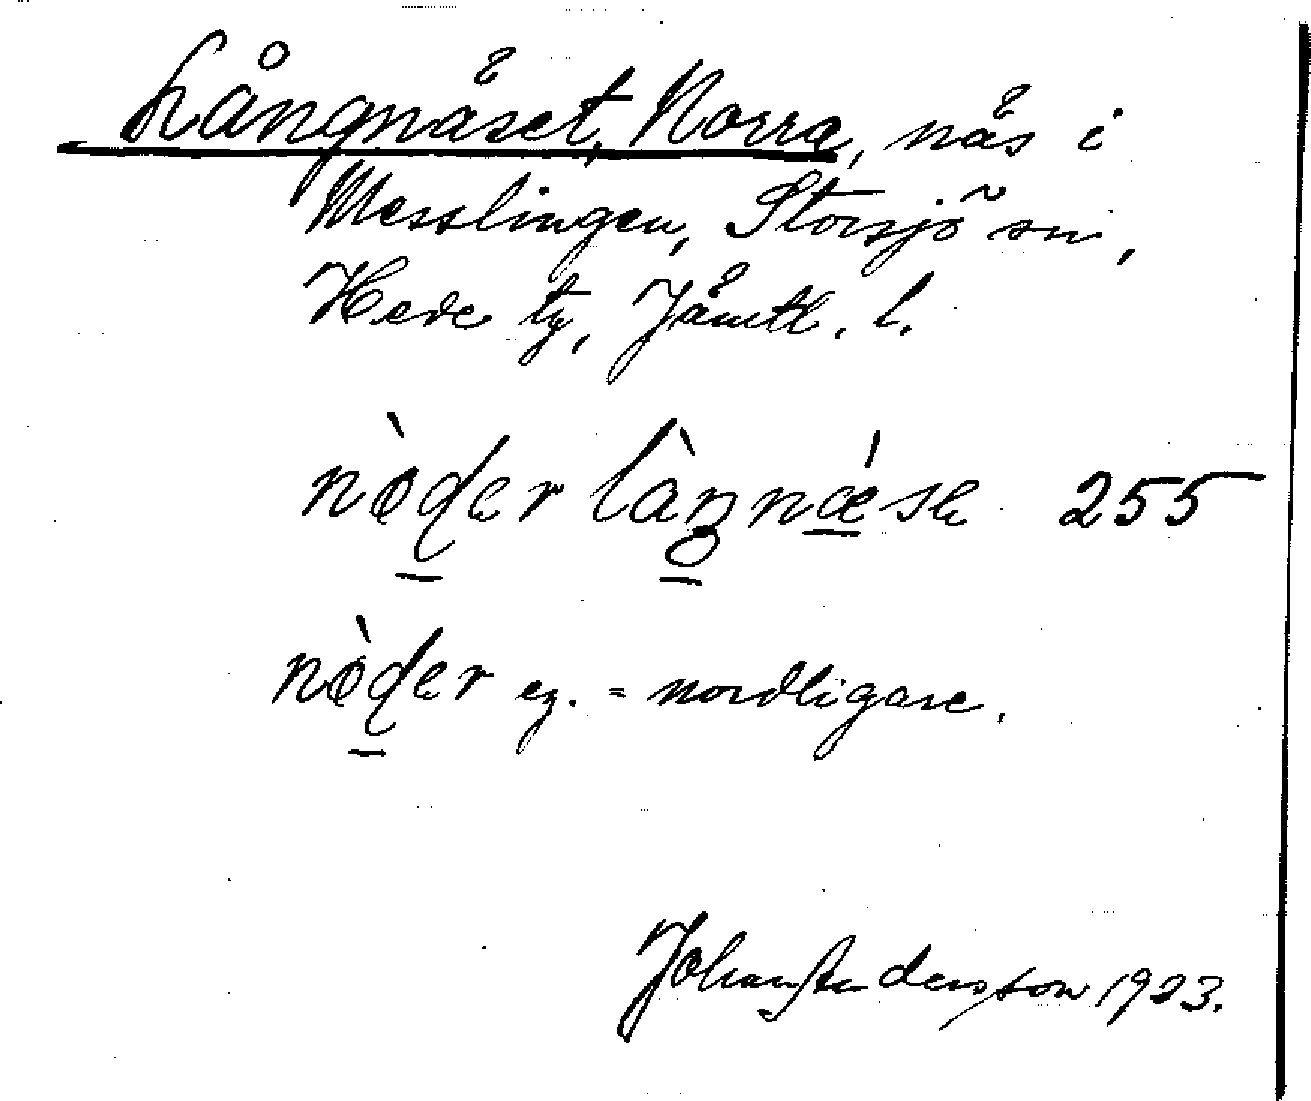 Långnäset, Norra, näs i
Messlingen, Storsjö sn,
Hede tg, Jämtl. l.
nø̀der làŋnǽse 255
nø̀der eg. = nordligare.
Johan Andersson 1923.